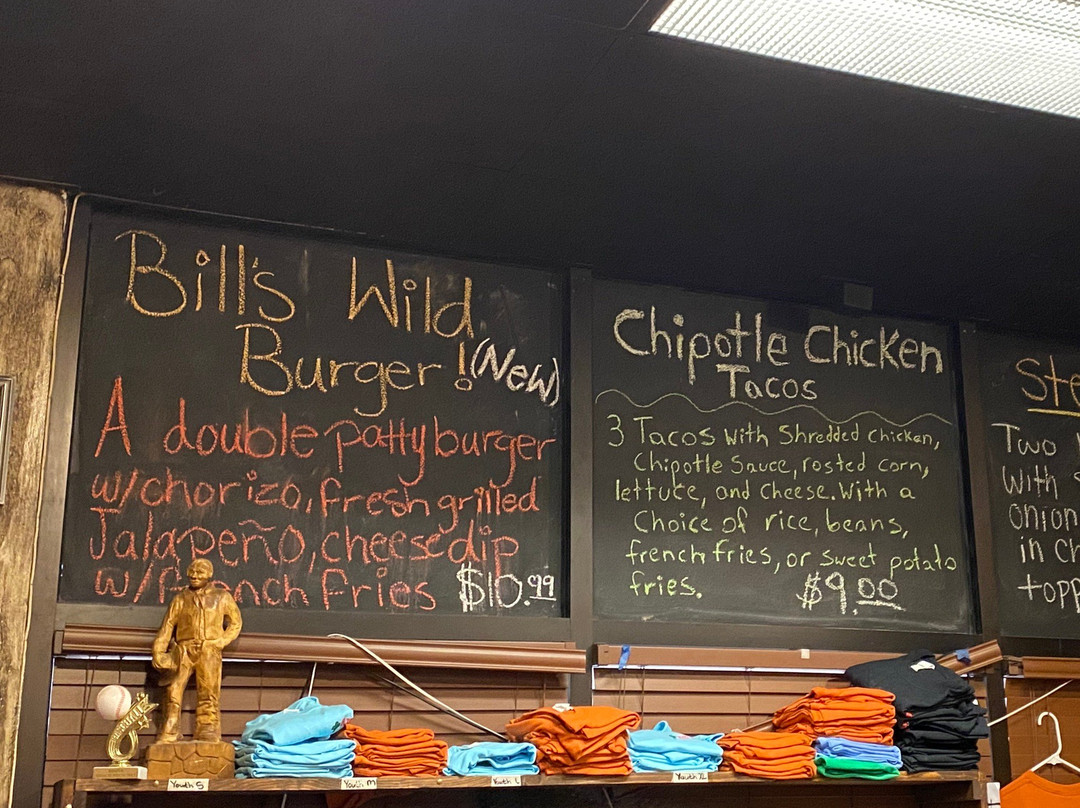 Bill's Wild
Burger! (New)
A double patty burger
w/chorizo, fresh grilled
Jalapeño, cheese dip
w/french fries $10.99
Chipotle Chicken
Tacos
3 Tacos with Shredded chicken,
Chipotle Sauce, rosted corn,
lettuce, and cheese. With a
Choice of rice, beans,
french fries, or sweet potato
fries. $9.00
Ste
Two
With
onion
in Ch
topp
Youth S
Youth M
Youth L
Youth XL